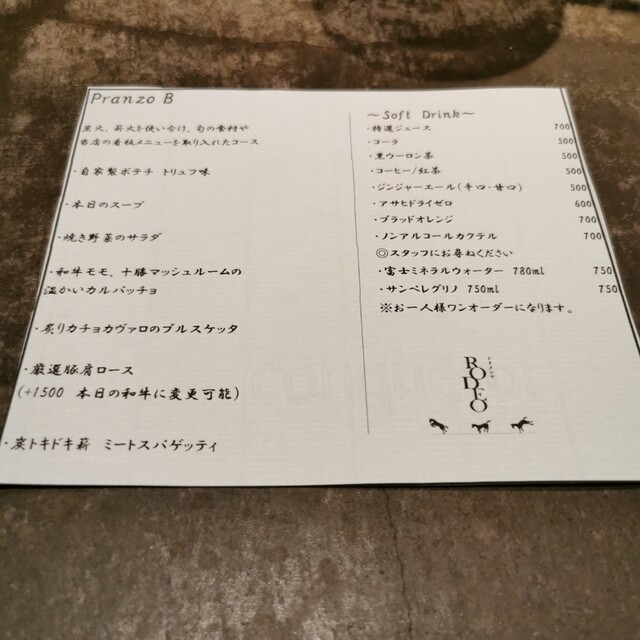 Pranzo B
炭火、薪火を使い分け、旬の食材や
当店の看板メニューを取り入れたコース
・自家製ポテチ トリュフ味
・本日のスープ
・焼き野菜のサラダ
・和牛モモ、十勝マッシュルームの
温かいカルパッチョ
・炙りカチョカヴァロのブルスケッタ
・厳選豚肩ロース
(+1500 本日の和牛に変更可能)
・炭トキドキ薪 ミートスパゲッティ
～Soft Drink～
・特選ジュース 700
・コーラ 500
・黒ウーロン茶 500
・コーヒー/紅茶 500
・ジンジャーエール(辛口・甘口) 500
・アサヒドライゼロ 600
・ブラッドオレンジ 700
・ノンアルコールカクテル 700
◎スタッフにお尋ねください
・富士ミネラルウォーター 780ml 750
・サンペレグリノ 750ml 750
※お一人様ワンオーダーになります。
RODEO